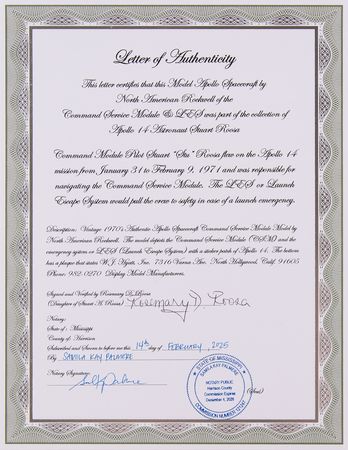 Letter of Authenticity
This letter certifies that this Model Apollo Spacecraft by
North American Rockwell of the
Command Service Module & LES was part of the collection of
Apollo 14 Astronaut Stuart Roosa
Command Module Pilot Stuart "Stu" Roosa flew on the Apollo 14
mission from January 31 to February 9, 1971 and was responsible for
navigating the Command Service Module. The LES or Launch
Escape System would pull the crew to safety in case of a launch emergency.
Description: Vintage 1970's Authentic Apollo Spacecraft Command Service Module Model by
North American Rockwell. The model depicts the Command Service Module (CSM) and the
emergency system or LES (Launch Escape System) with a sticker patch of Apollo 14. The bottom
has a plaque that states W.J. Hyatt, Inc. 7316 Varna Ave. North Hollywood, Calif. 91605
Phone: 982-0270 Display Model Manufacturers.
Signed and Verified by Rosemary D. Roosa
(Daughter of Stuart A. Roosa) Rosemary D. Roosa
Notary:
State of: Mississippi
County of: Harrison
Subscribed and Sworn to before me this 14th day of FEBRUARY, 2025
By
Notary Signature:
STATE OF MISSISSIPPI
NOTARY PUBLIC
Harrison County
Commission Expires
COMMISSION NUMBER
(Seal)